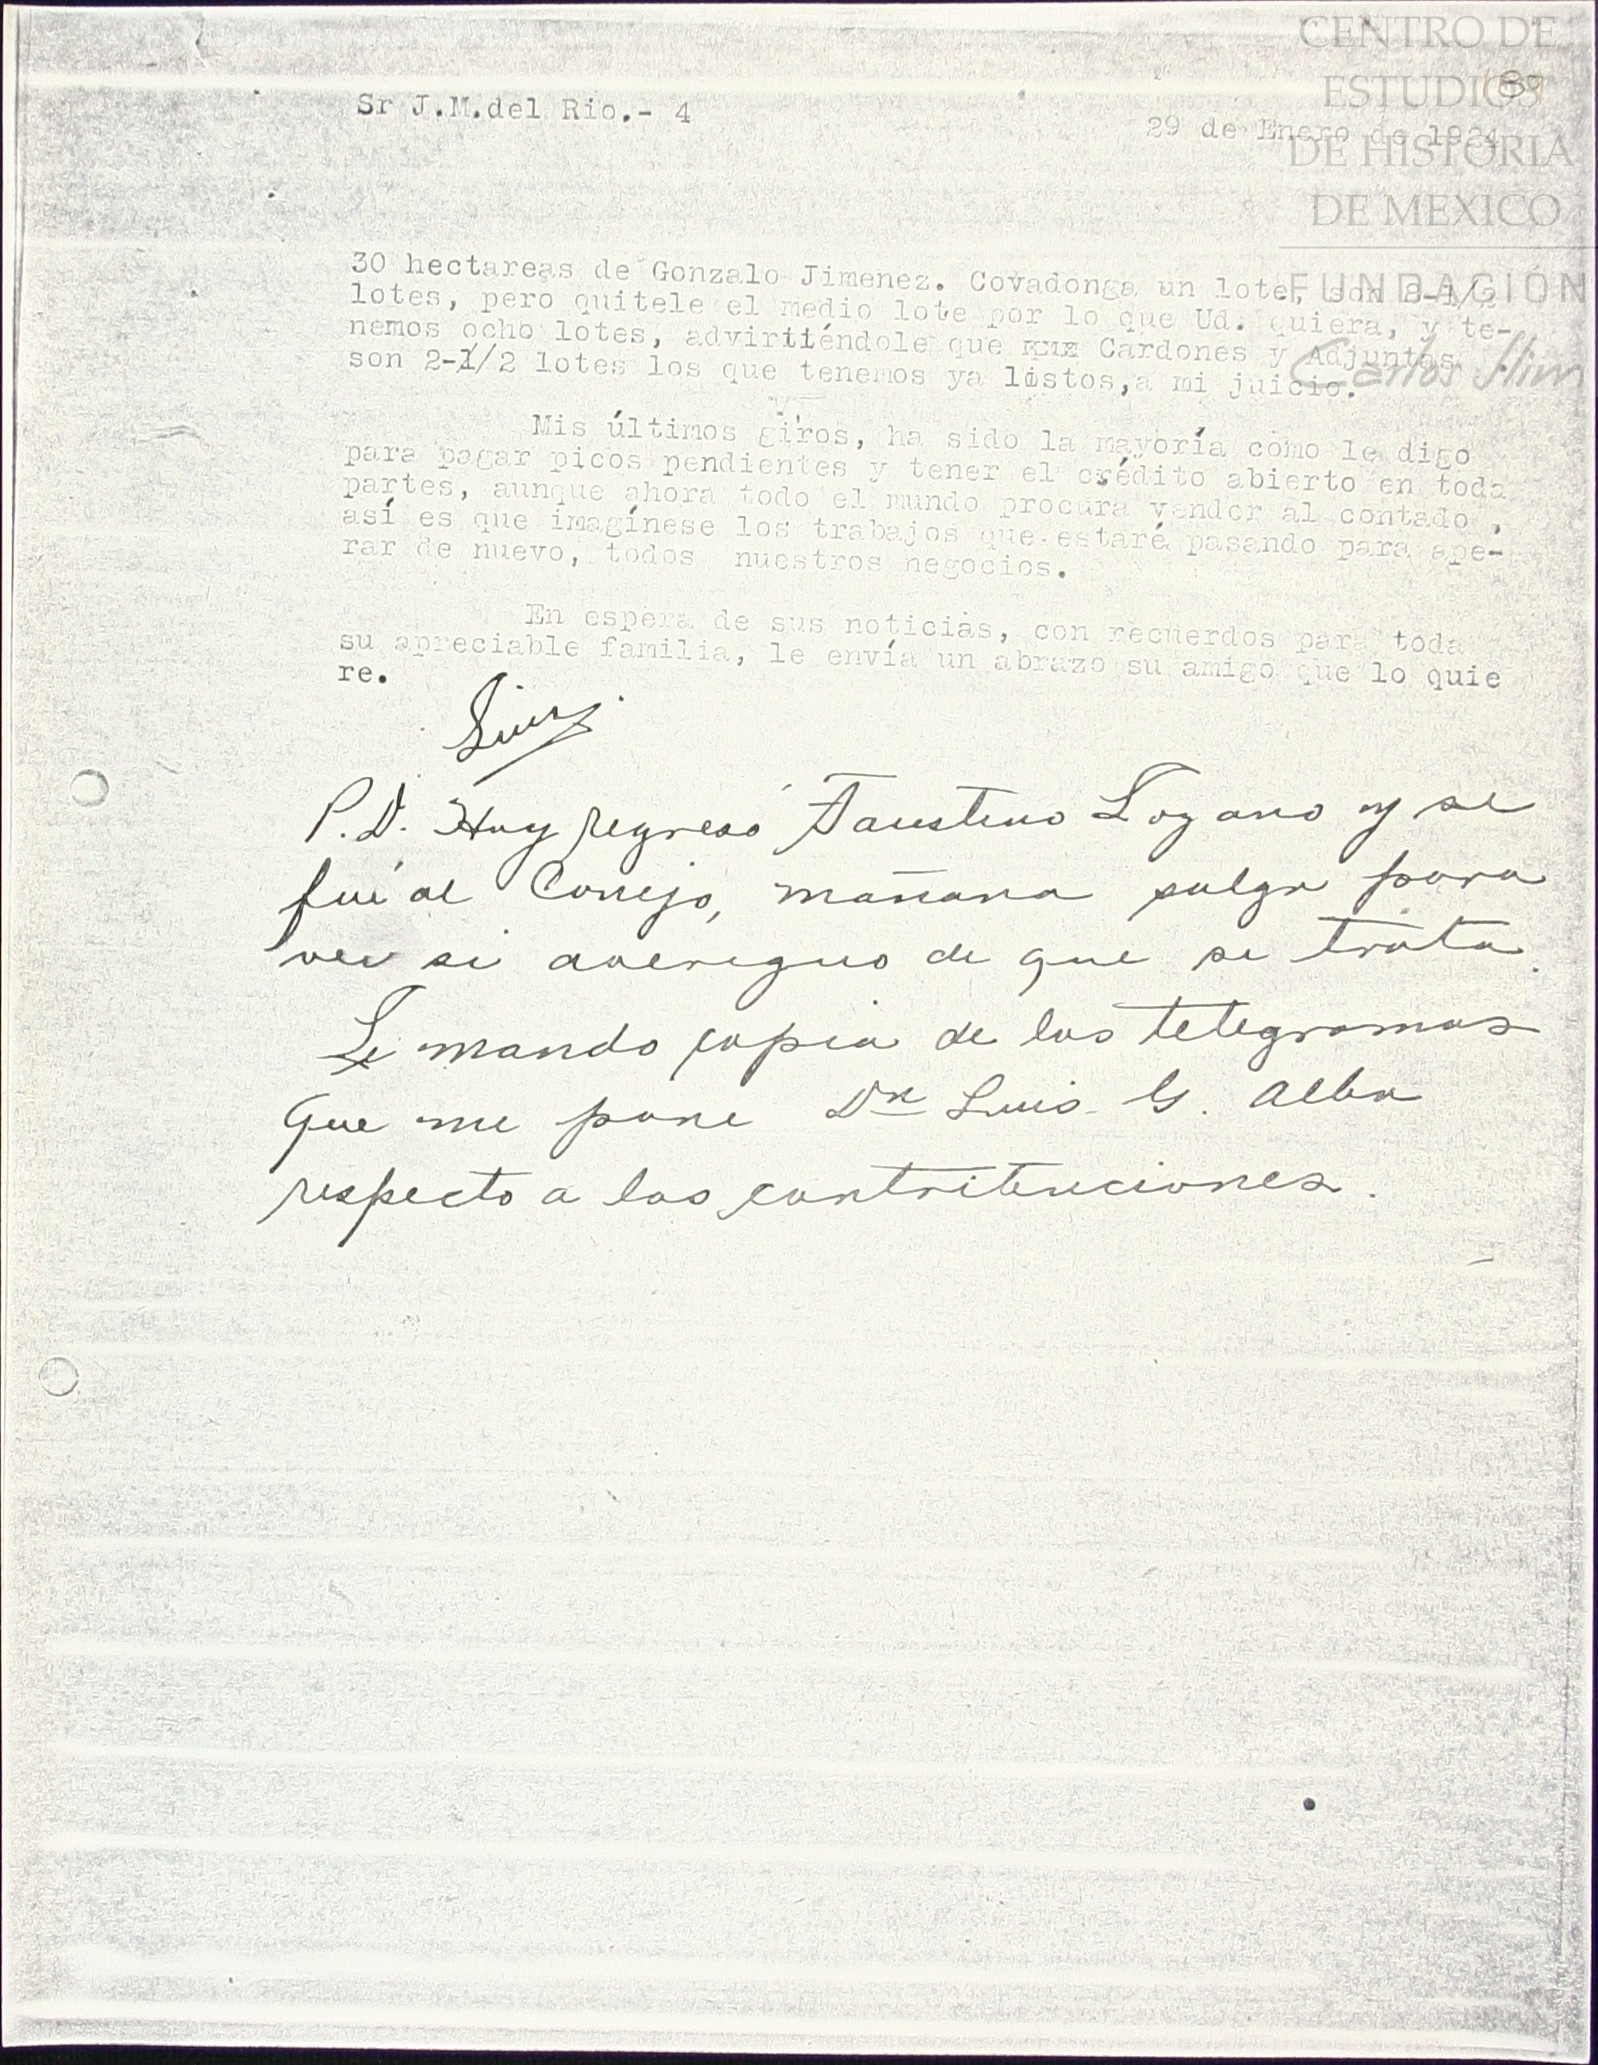 CENTRO DE
ESTUDIOS
DE HISTORIA
DE MEXICO
FUNDACIÓN
Carlos Slim
89
Sr J.M.del Rio.- 4
29 de Enero de 1924
30 hectareas de Gonzalo Jimenez. Covadonga un lote, son 8-1/2
lotes, pero quitele el medio lote por lo que Ud. quiera, y te-
nemos ocho lotes, advirtiéndole que Cardones y Adjuntas
son 2-1/2 lotes los que tenemos ya listos,a mi juicio.
Mis últimos giros, ha sido la mayoría como le digo
para pagar picos pendientes y tener el crédito abierto en toda
partes, aunque ahora todo el mundo procura vender al contado ,
así es que imagínese los trabajos que estaré pasando para ape-
rar de nuevo, todos nuestros negocios.
En espera de sus noticias, con recuerdos para toda
su apreciable familia, le envía un abrazo su amigo que lo quie
re.
Luis
P.D. Hoy regresó Faustino Lozano y se
fué al Conejo, mañana salgo para
ver si averiguo de que se trata.
Le mando copia de los telegramas
que me pone Dn Luis G. Alba
respecto a las contribuciones.